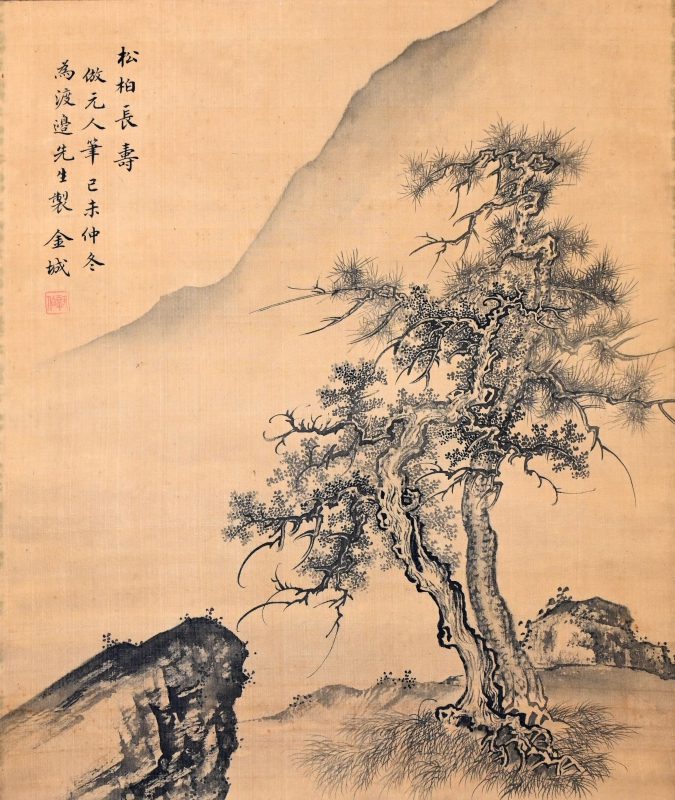 松柏長壽
倣元人筆己未仲冬
為渡邉先生製 金城